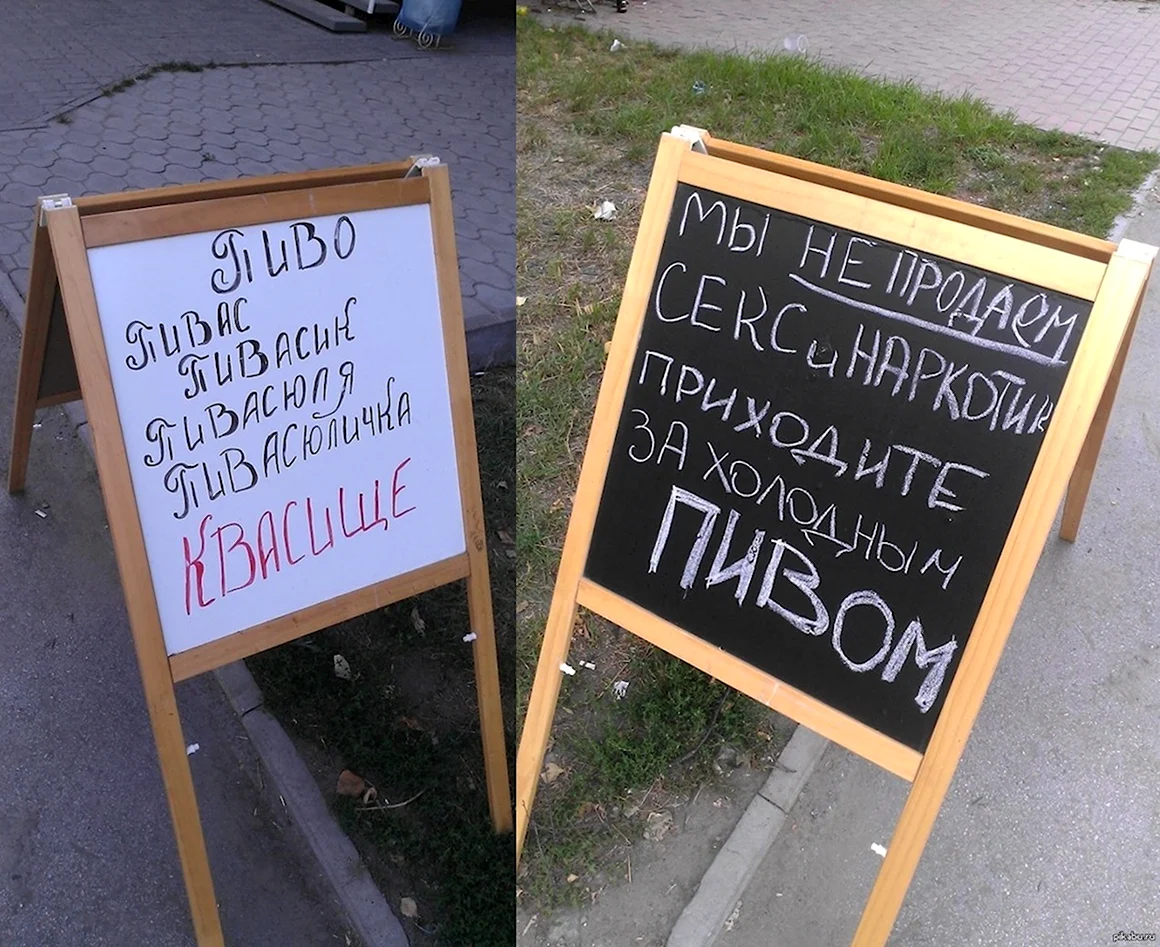 Пиво
Пивас
Пивасик
Пивасюля
Пивасюличка
Квасище
МЫ НЕ ПРОДАЕМ
СЕКС и НАРКОТИК
ПРИХОДИТЕ
ЗА ХОЛОДНЫМ
ПИВОМ
pikabu.ru